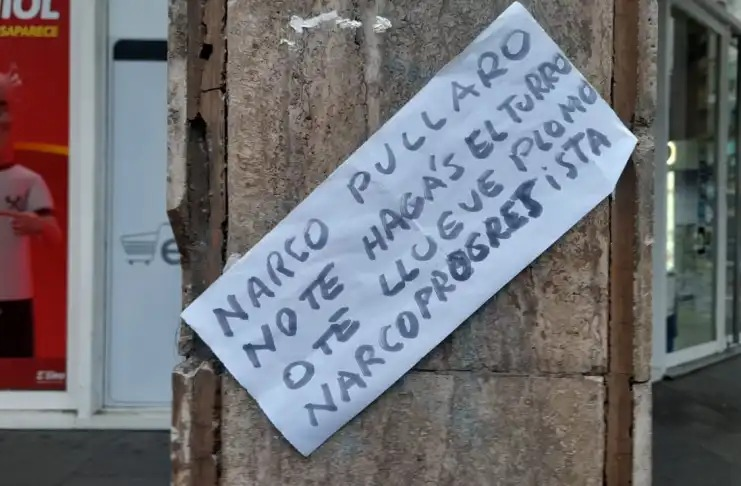 IOL
SAPARECE
NARCO PULLARO
NO TE HAGÁS EL TURRO
O TE LLUEVE PLOMO
NARCOPROGRESISTA